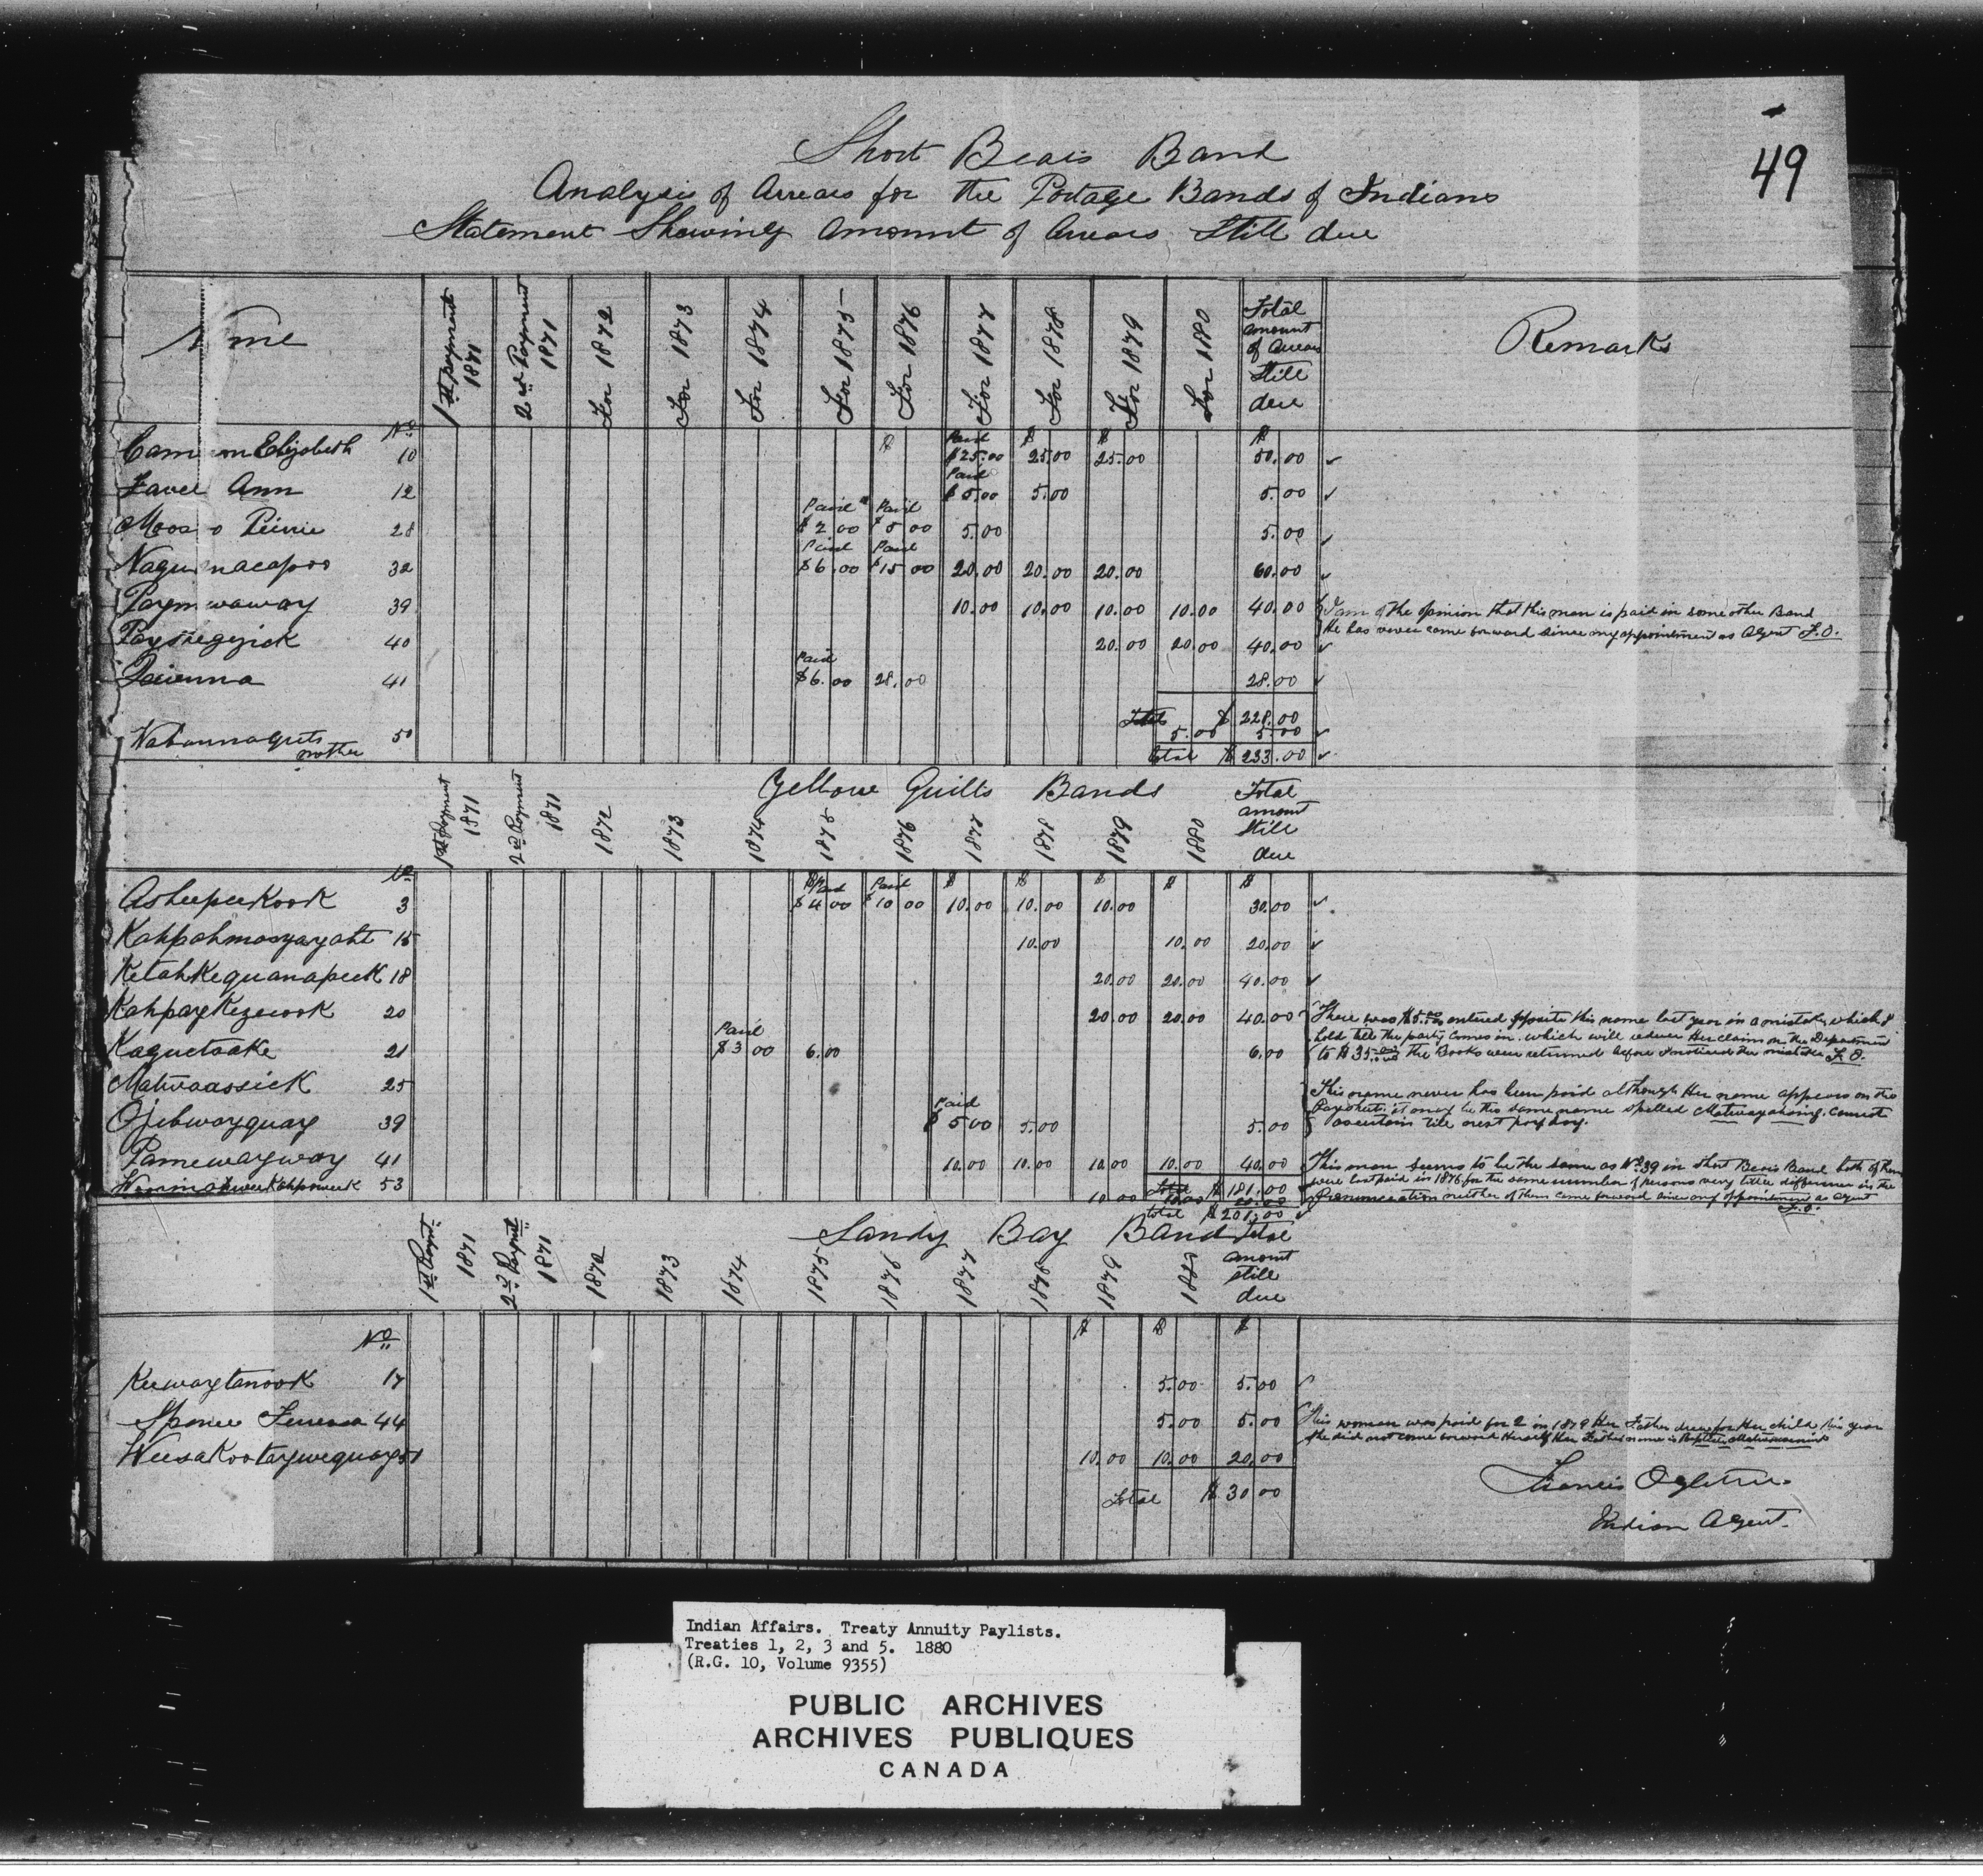 49
Short Bears Band
Analysis of Arrears for the Portage Bands of Indians
Statement Shewing Amount of Arrears Still due
Name 1st payment 1871 2nd Payment 1871 For 1872 For 1873 For 1874 For 1875 For 1876 For 1877 For 1878 For 1879 For 1880 Total amount of Arrears Still due Remarks
No
Cameron Elizabeth 10 $ Paid $25.00 $ 25.00 $ 25.00 $ 50.00 ✓
Favel Ann 12 Paid $5.00 5.00 5.00 ✓
Moos o Pierrie 28 Paid $2.00 Paid $5.00 5.00 5.00 ✓
Nagu nacapoo 32 Paid $6.00 Paid $15.00 20.00 20.00 20.00 60.00 ✓
Paymewaway 39 10.00 10.00 10.00 10.00 40.00 I am of the opinion that this man is paid in some other Band
He has never come forward since my appointment as Agent F.O.
Payshegezick 40 20.00 20.00 40.00 ✓
41 Paid $6.00 28.00 28.00 ✓
Total $ 228.00
mother 50 5.00 5.00 ✓
Total $ 233.00 ✓
Yellow Quills Bands
1st Payment 1871 2nd Payment 1871 1872 1873 1874 1875 1876 1877 1878 1879 1880 Total amount Still due
No
Asheepeekook 3 $ Paid $4.00 Paid $10.00 $ 10.00 $ 10.00 $ 10.00 $ $ 30.00 ✓
Kahpahmosyayaht 15 10.00 10.00 20.00 ✓
Ketahkequanapeek 18 20.00 20.00 40.00 ✓
Kahpaykezewook 20 20.00 20.00 40.00 There was $5.00 entered opposite this name last year in a mistake, which I
hold till the party comes in. which will reduce Her claim on the Department
to $35.00 The Books were returned before I noticed the mistake F.O.
Kaquetaake 21 Paid $3.00 6.00 6.00
Matwaassick 25 This name never has been paid although Her name appears on the
Paysheet. it may be the same name spelled cannot
ascertain till next pay day.
Ojebwayquay 39 Paid $5.00 5.00 5.00
Pamewayway 41 10.00 10.00 10.00 10.00 40.00 This man seems to be the same as No 39 in Short Bears Band both of them
were last paid in 1876 for the same number of persons very little difference in the
Pronunciation neither of them came forward since my appointment as Agent
F.O.
Total $ 181.00
53 10.00 10.00 20.00
Total $ 201.00 ✓
Sandy Bay Band
1st Paymt. 1871 2nd Paymt 1871 1872 1873 1874 1875 1876 1877 1878 1879 1880 Total amount still due
No $ $ $
Keewaytanook 17 5.00 5.00 ✓
Spence 44 5.00 5.00 This woman was paid for 2 in 1879 Her Father drew for Her child this year
She did not come forward Herself Her Father name is Baptiste
Weesakootaywequay 51 10.00 10.00 20.00
Total $ 30.00
Francis Ogletree
Indian Agent.
Indian Affairs. Treaty Annuity Paylists.
Treaties 1, 2, 3 and 5. 1880
(R.G. 10, Volume 9355)
PUBLIC ARCHIVES
ARCHIVES PUBLIQUES
CANADA